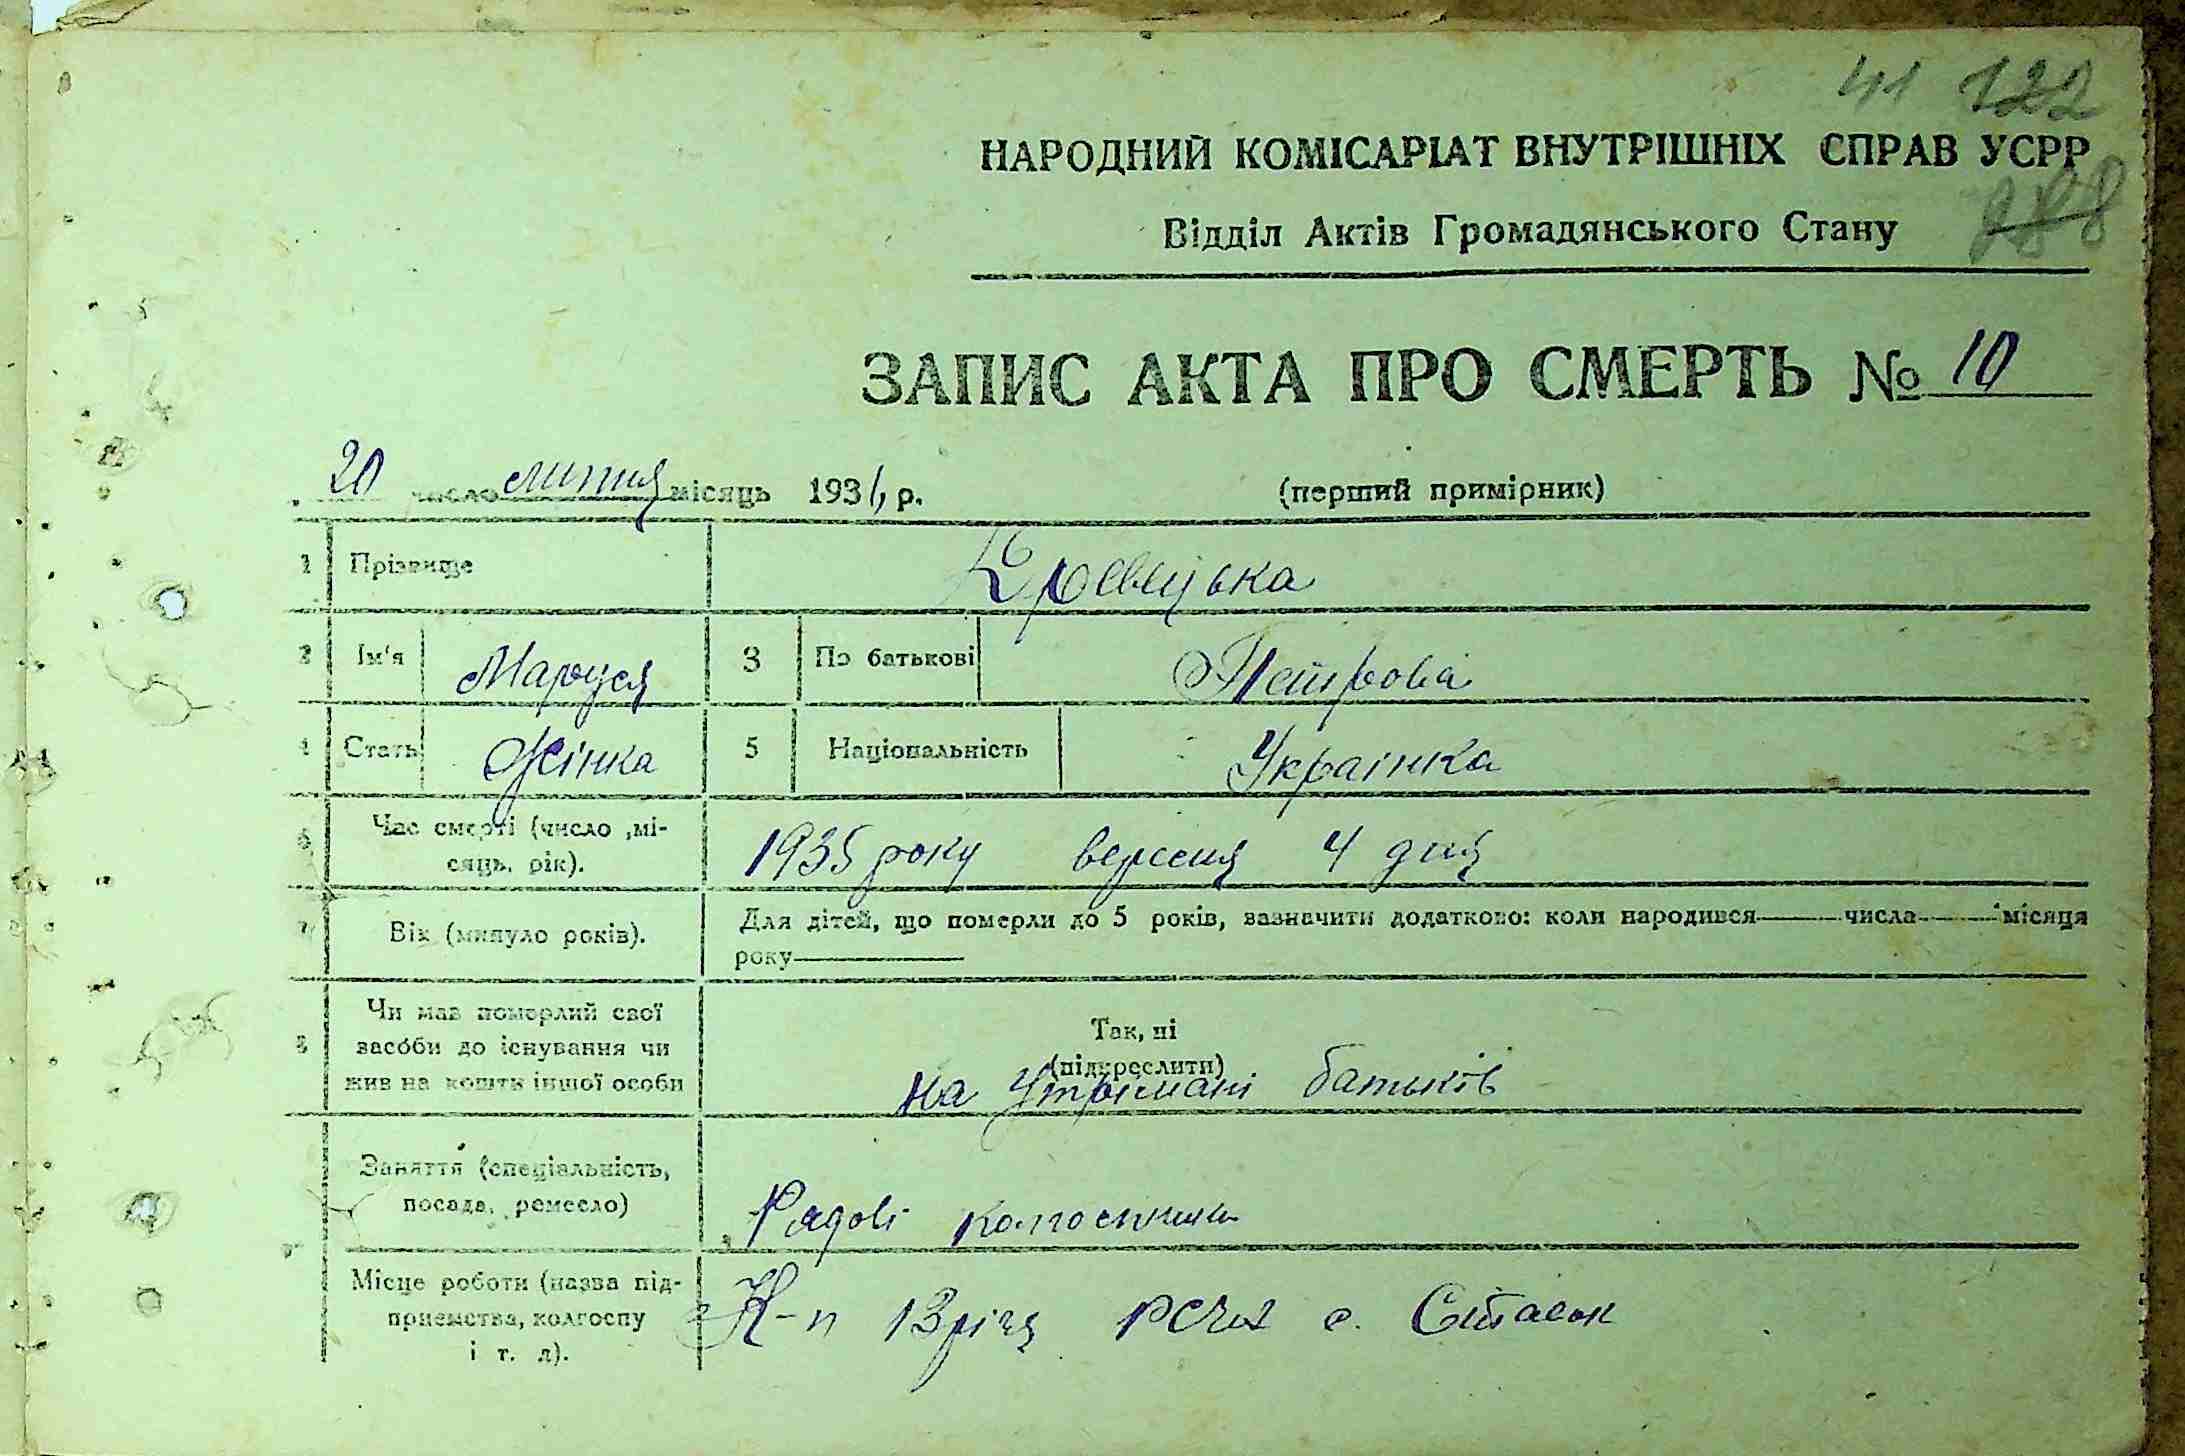 41 122
НАРОДНИЙ КОМІСАРІАТ ВНУТРІШНІХ СПРАВ УСРР
Відділ Актів Громадянського Стану
ЗАПИС АКТА ПРО СМЕРТЬ № 10
20 число липня місяць 193 р. (перший примірник)
1 Прізвище
2 Ім'я Маруся 3 По батькові Петрова
4 Стать Жінка 5 Національність Украінка
6 Час смерті (число ,мі-
сяць, рік). 1935 року версня 4 дня
7 Вік (минуло років). Для дітей, що померли до 5 років, зазначити додатково: коли народився числа місяця
року
8 Чи мав померлий свої
засоби до існування чи
жив на кошти іншої особи
Так, ні
(підкреслити)
на Утрімані батьків
Заняття (спеціальність,
посада, ремесло)
Рядові колгоспники
Місце роботи (назва під-
приємства, колгоспу
і т. д).
К-п 13річя РСЧА с. Стасюк